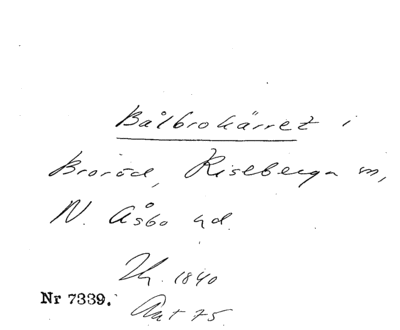 Bålbrokärret i
Broröd, Riseberga sn,
N. Åsbo hd.
1840
Nr 7339.
Akt 75